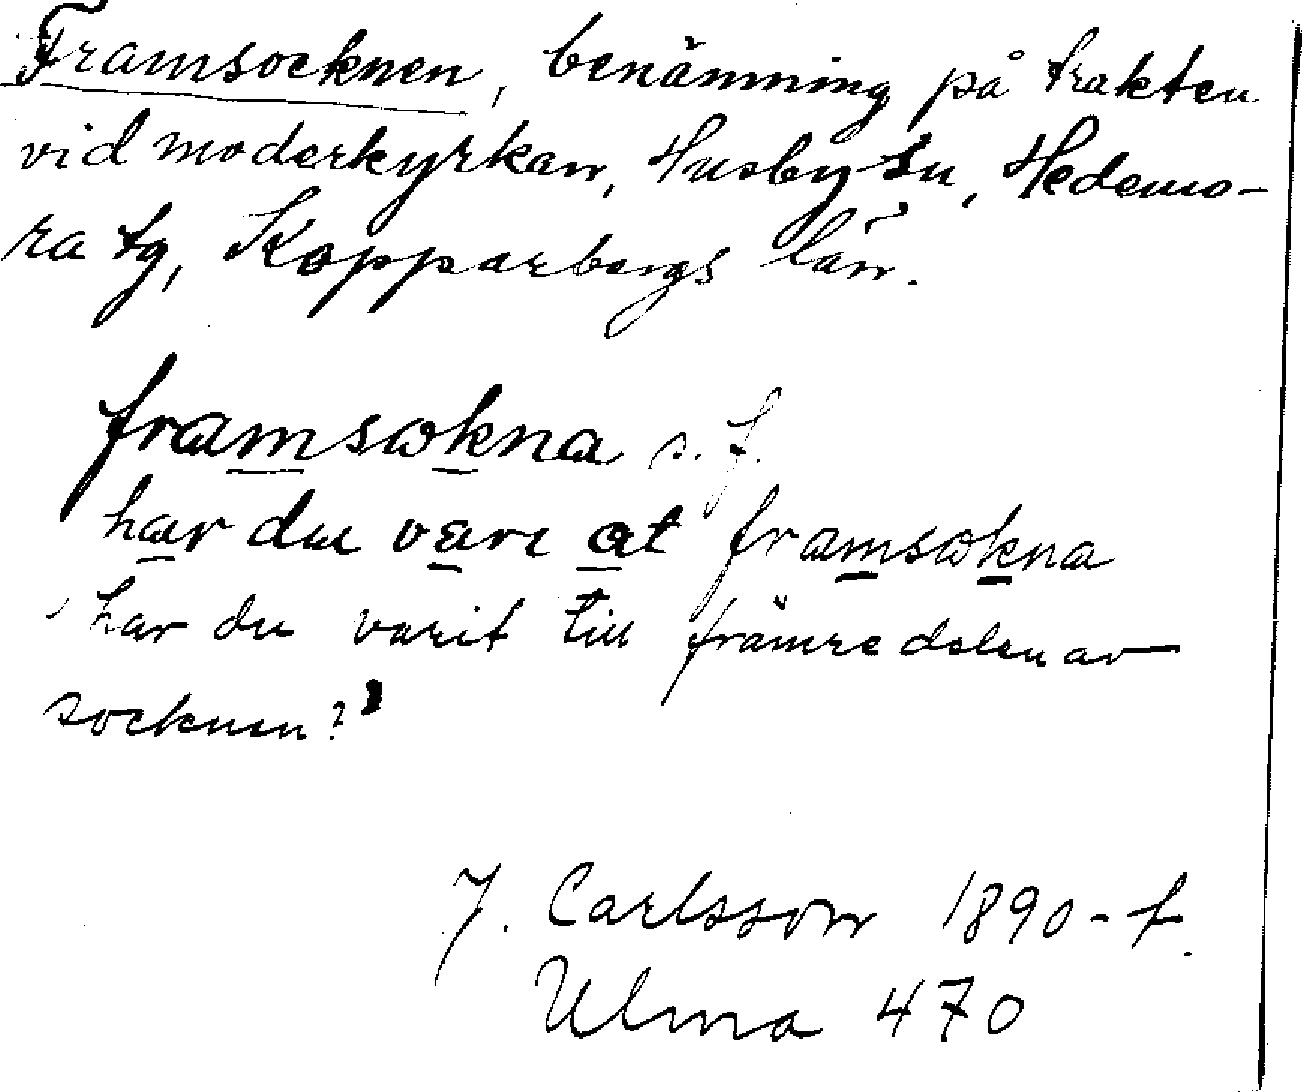 Framsocknen, benämning på trakten
vid moderkyrkan, Husby sn, Hedemo-
ra tg, Kopparbergs län.
framsωkna s. f.
har du vare at framsωkna
'har du varit till främre delen av
socknen?'
J. Carlsson 1890-t.
Ulma 470